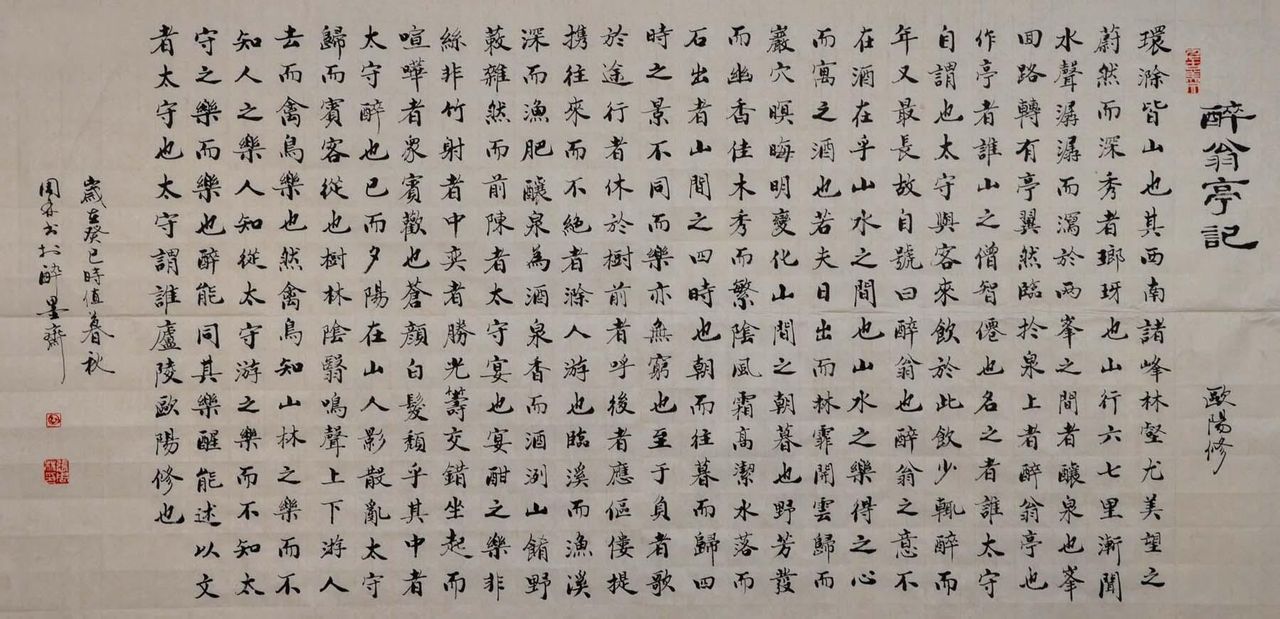 醉翁亭記
歐陽修
環滁皆山也其西南諸峰林壑尤美望之
蔚然而深秀者瑯玡也山行六七里漸聞
水聲潺潺而瀉於兩峯之間者釀泉也峯
回路轉有亭翼然臨於泉上者醉翁亭也
作亭者誰山之僧智僊也名之者誰太守
自謂也太守與客來飲於此飲少輒醉而
年又最長故自號曰醉翁也醉翁之意不
在酒在乎山水之間也山水之樂得之心
而寓之酒也若夫日出而林霏開雲歸而
巖穴暝晦明變化山間之朝暮也野芳發
而幽香佳木秀而繁陰風霜高潔水落而
石出者山間之四時也朝而往暮而歸四
時之景不同而樂亦無窮也至于負者歌
於途行者休於樹前者呼後者應傴僂提
携往來而不絕者滁人游也臨溪而漁溪
深而漁肥釀泉為酒泉香而酒洌山餚野
蔌雜然而前陳者太守宴也宴酣之樂非
絲非竹射者中奕者勝光籌交錯坐起而
喧嘩者衆賓歡也蒼顔白髮頹乎其中者
太守醉也已而夕陽在山人影散亂太守
歸而賓客從也樹林陰翳鳴聲上下游人
去而禽鳥樂也然禽鳥知山林之樂而不
知人之樂人知從太守游之樂而不知太
守之樂而樂也醉能同其樂醒能述以文
者太守也太守謂誰廬陵歐陽修也
歲在癸巳時值春秋
書於醉墨齋